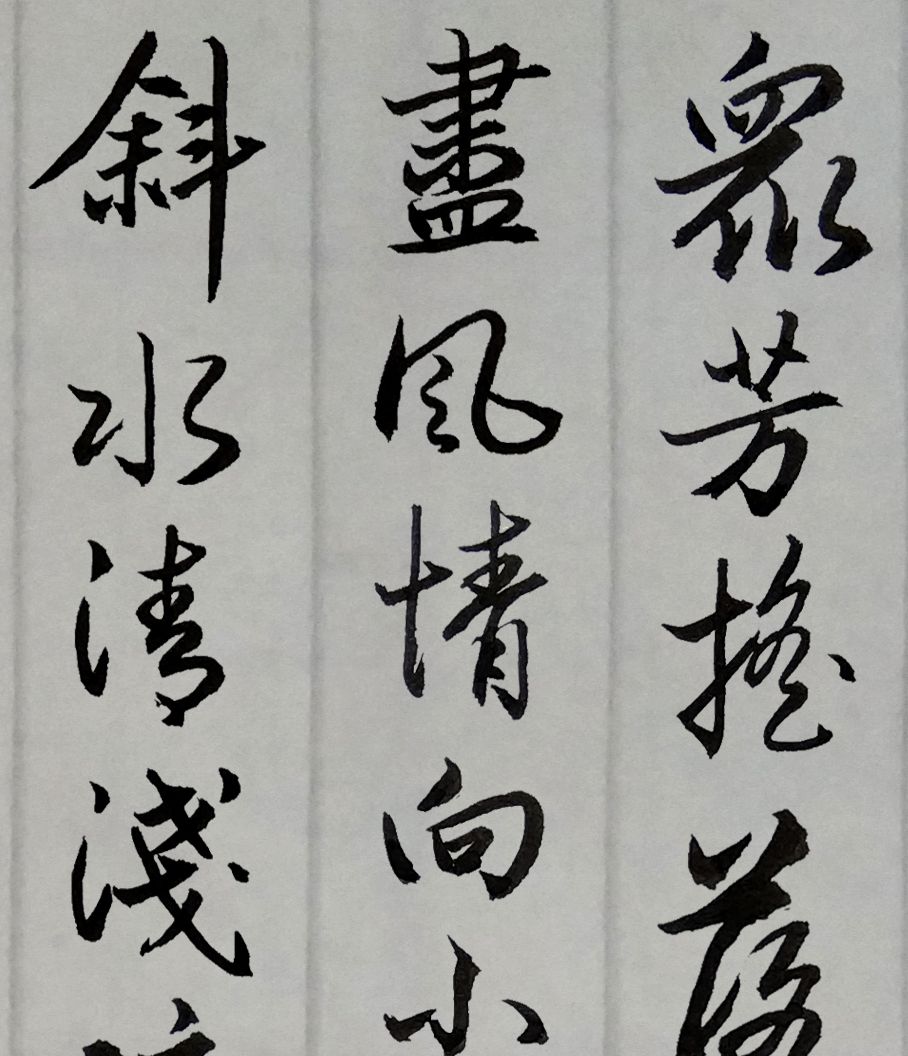 眾芳搖落
盡風情向小
斜水清淺